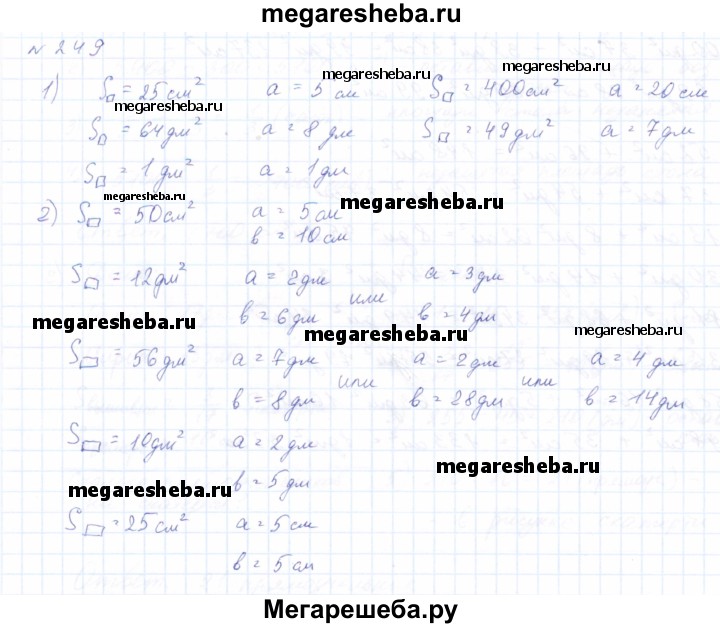 megaresheba.ru
№ 249
1) S□ = 25 см² a = 5 см S□ = 400 см² a = 20 см
megaresheba.ru
megaresheba.ru
megaresheba.ru
S□ = 64 дм² a = 8 дм S□ = 49 дм² a = 7 дм
S□ = 1 дм² a = 1 дм
megaresheba.ru
megaresheba.ru
2) S▭ = 50 см² a = 5 см
в = 10 см
S▭ = 12 дм² a = 2 дм или a = 3 дм
в = 6 дм в = 4 дм
megaresheba.ru
megaresheba.ru
megaresheba.ru
S▭ = 56 дм² a = 7 дм или a = 2 дм или a = 4 дм
в = 8 дм в = 28 дм в = 14 дм
S▭ = 10 дм² a = 2 дм
megaresheba.ru
в = 5 дм
megaresheba.ru
S▭ = 25 см² a = 5 см
в = 5 см
Мегарешеба.ру